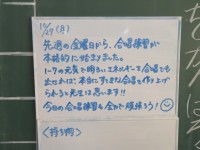 10/27 (月)
先週の金曜日から、合唱練習が
本格的に始まりました。
1-7の元気で明るいエネルギーを合唱でも
出せれば、本当にすてきな合唱を作り上げ
られると先生は思います!!
今日の合唱練習も全力で頑張ろう!
<持ち物>